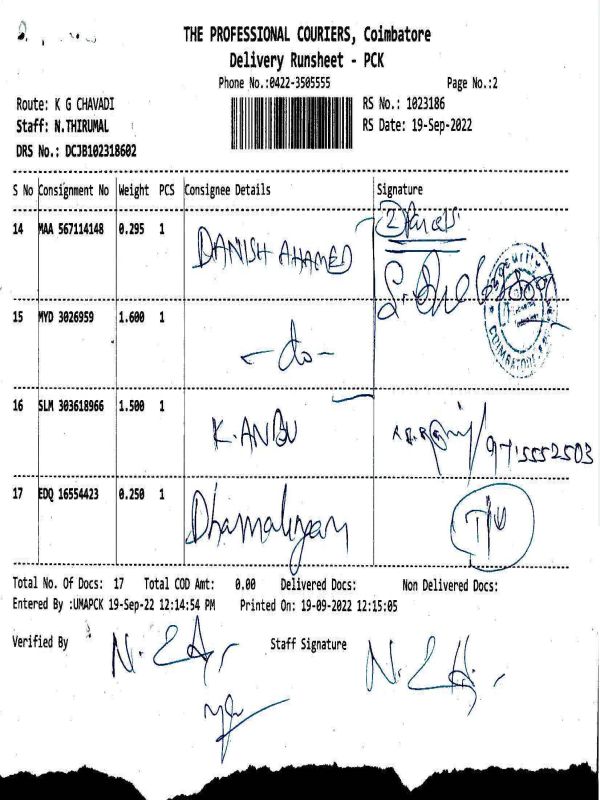 THE PROFESSIONAL COURIERS, Coimbatore
Delivery Runsheet - PCK
Phone No.:0422-3505555 Page No.:2
Route: K G CHAVADI RS No.: 1023186
Staff: N.THIRUMAL RS Date: 19-Sep-2022
DRS No.: DCJB102318602
S No Consignment No Weight PCS Consignee Details Signature
14 MAA 567114148 0.295 1 DANISH AHAMED 2 Parcels
Security
COIMBATORE
15 MYD 3026959 1.600 1 -do-
16 SLM 303618966 1.500 1 K.ANBU 9715552503
17 EDQ 16554423 0.250 1
Total No. Of Docs: 17 Total COD Amt: 0.00 Delivered Docs: Non Delivered Docs:
Entered By :UMAPCK 19-Sep-22 12:14:54 PM Printed On: 19-09-2022 12:15:05
Verified By Staff Signature